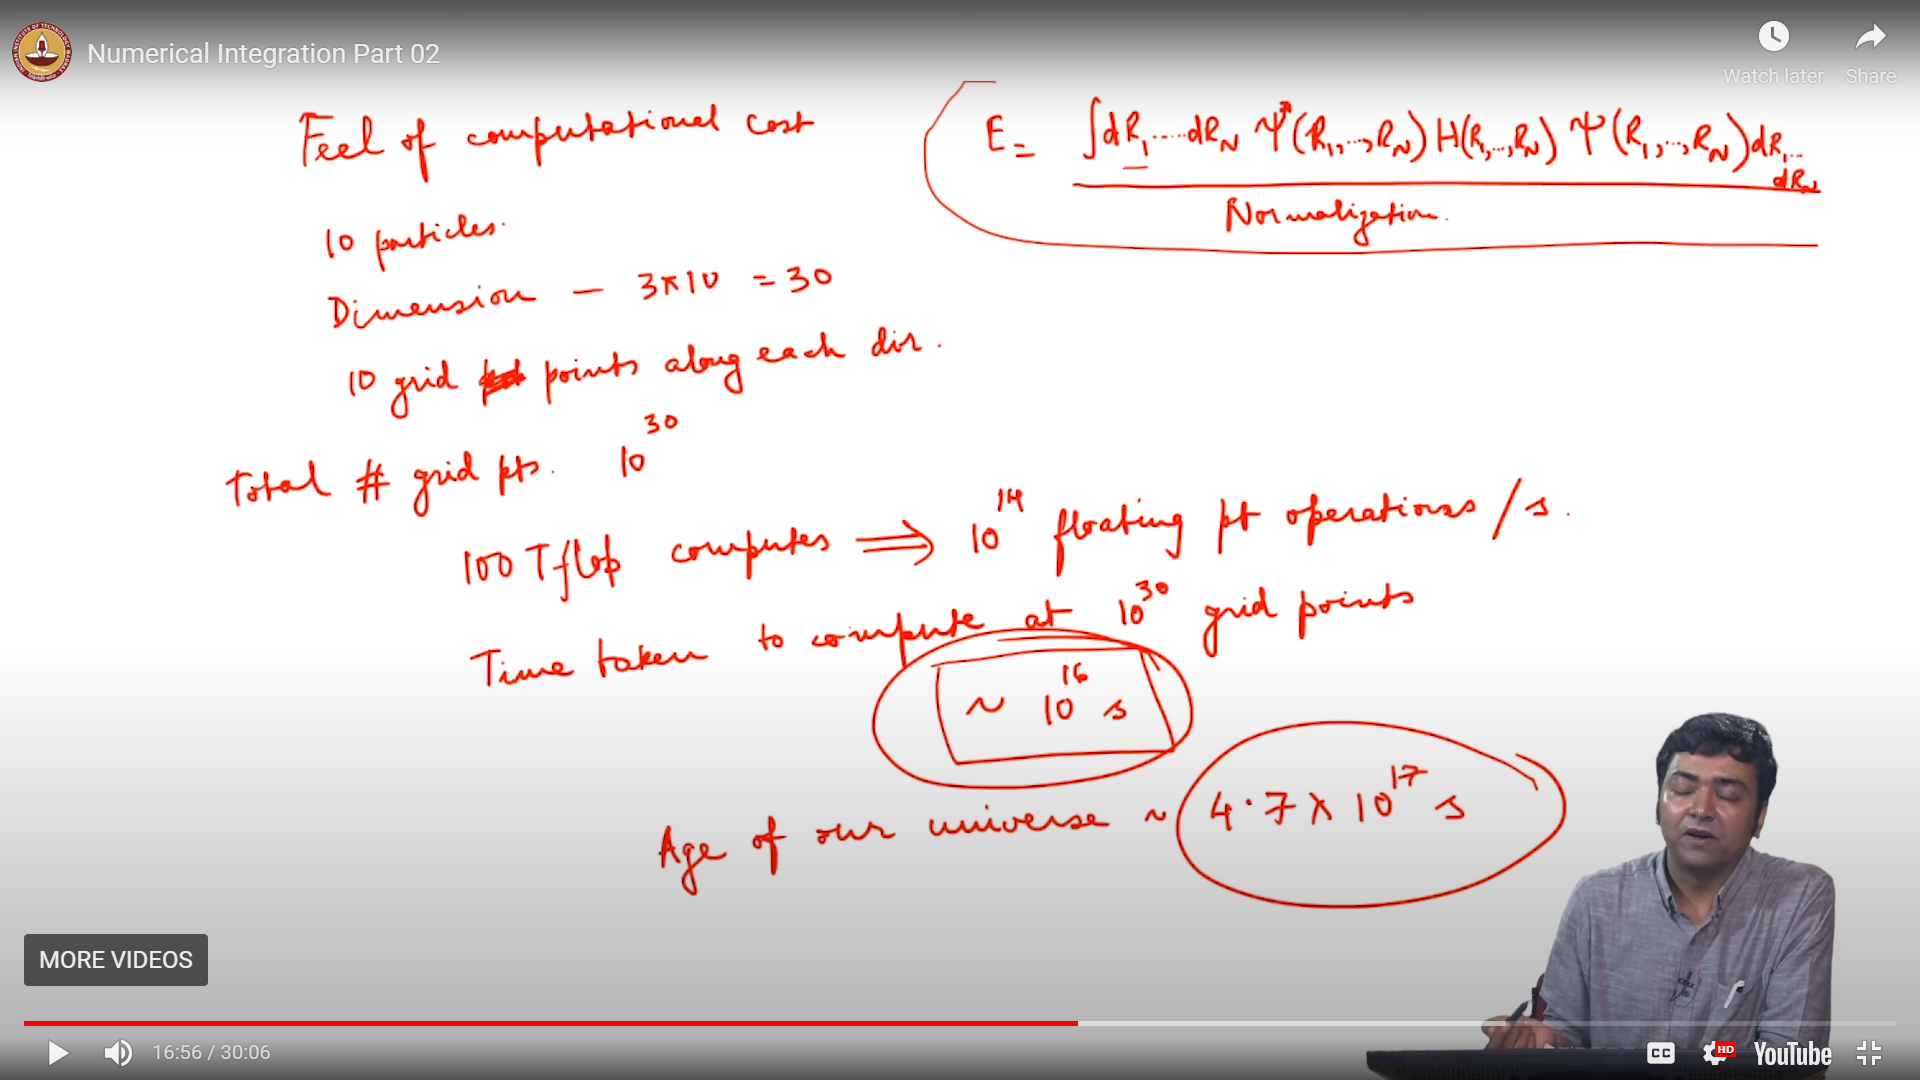 Numerical Integration Part 02
Watch later Share
Feel of computational cost
E = ∫dR₁....dR_N Ψ*(R₁,..,R_N) H(R₁,..,R_N) Ψ(R₁,..,R_N) dR₁... dR_N
Normalization.
10 particles.
Dimension — 3×10 = 30
10 grid points along each dir.
Total # grid pts. 10³⁰
100 Tflop computes ⟹ 10¹⁴ floating pt operations / s.
Time taken to compute at 10³⁰ grid points
~ 10¹⁶ s
Age of our universe ~ 4.7 × 10¹⁷ s
MORE VIDEOS
16:56 / 30:06
CC HD YouTube